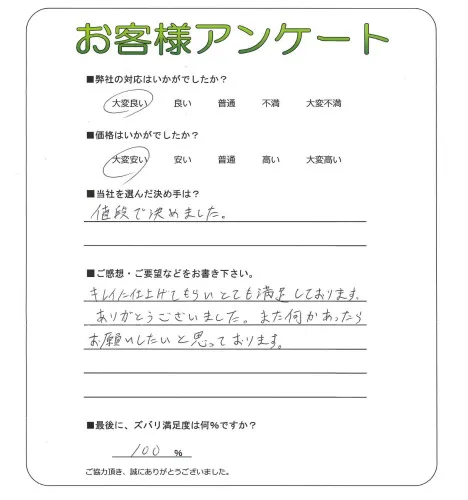 お客様アンケート
■弊社の対応はいかがでしたか？
大変良い 良い 普通 不満 大変不満
■価格はいかがでしたか？
大変安い 安い 普通 高い 大変高い
■当社を選んだ決め手は？
値段で決めました。
■ご感想・ご要望などをお書き下さい。
キレイに仕上げてもらいとても満足しております。
ありがとうございました。また何かあったら
お願いしたいと思っております。
■最後に、ズバリ満足度は何％ですか？
100 %
ご協力頂き、誠にありがとうございました。